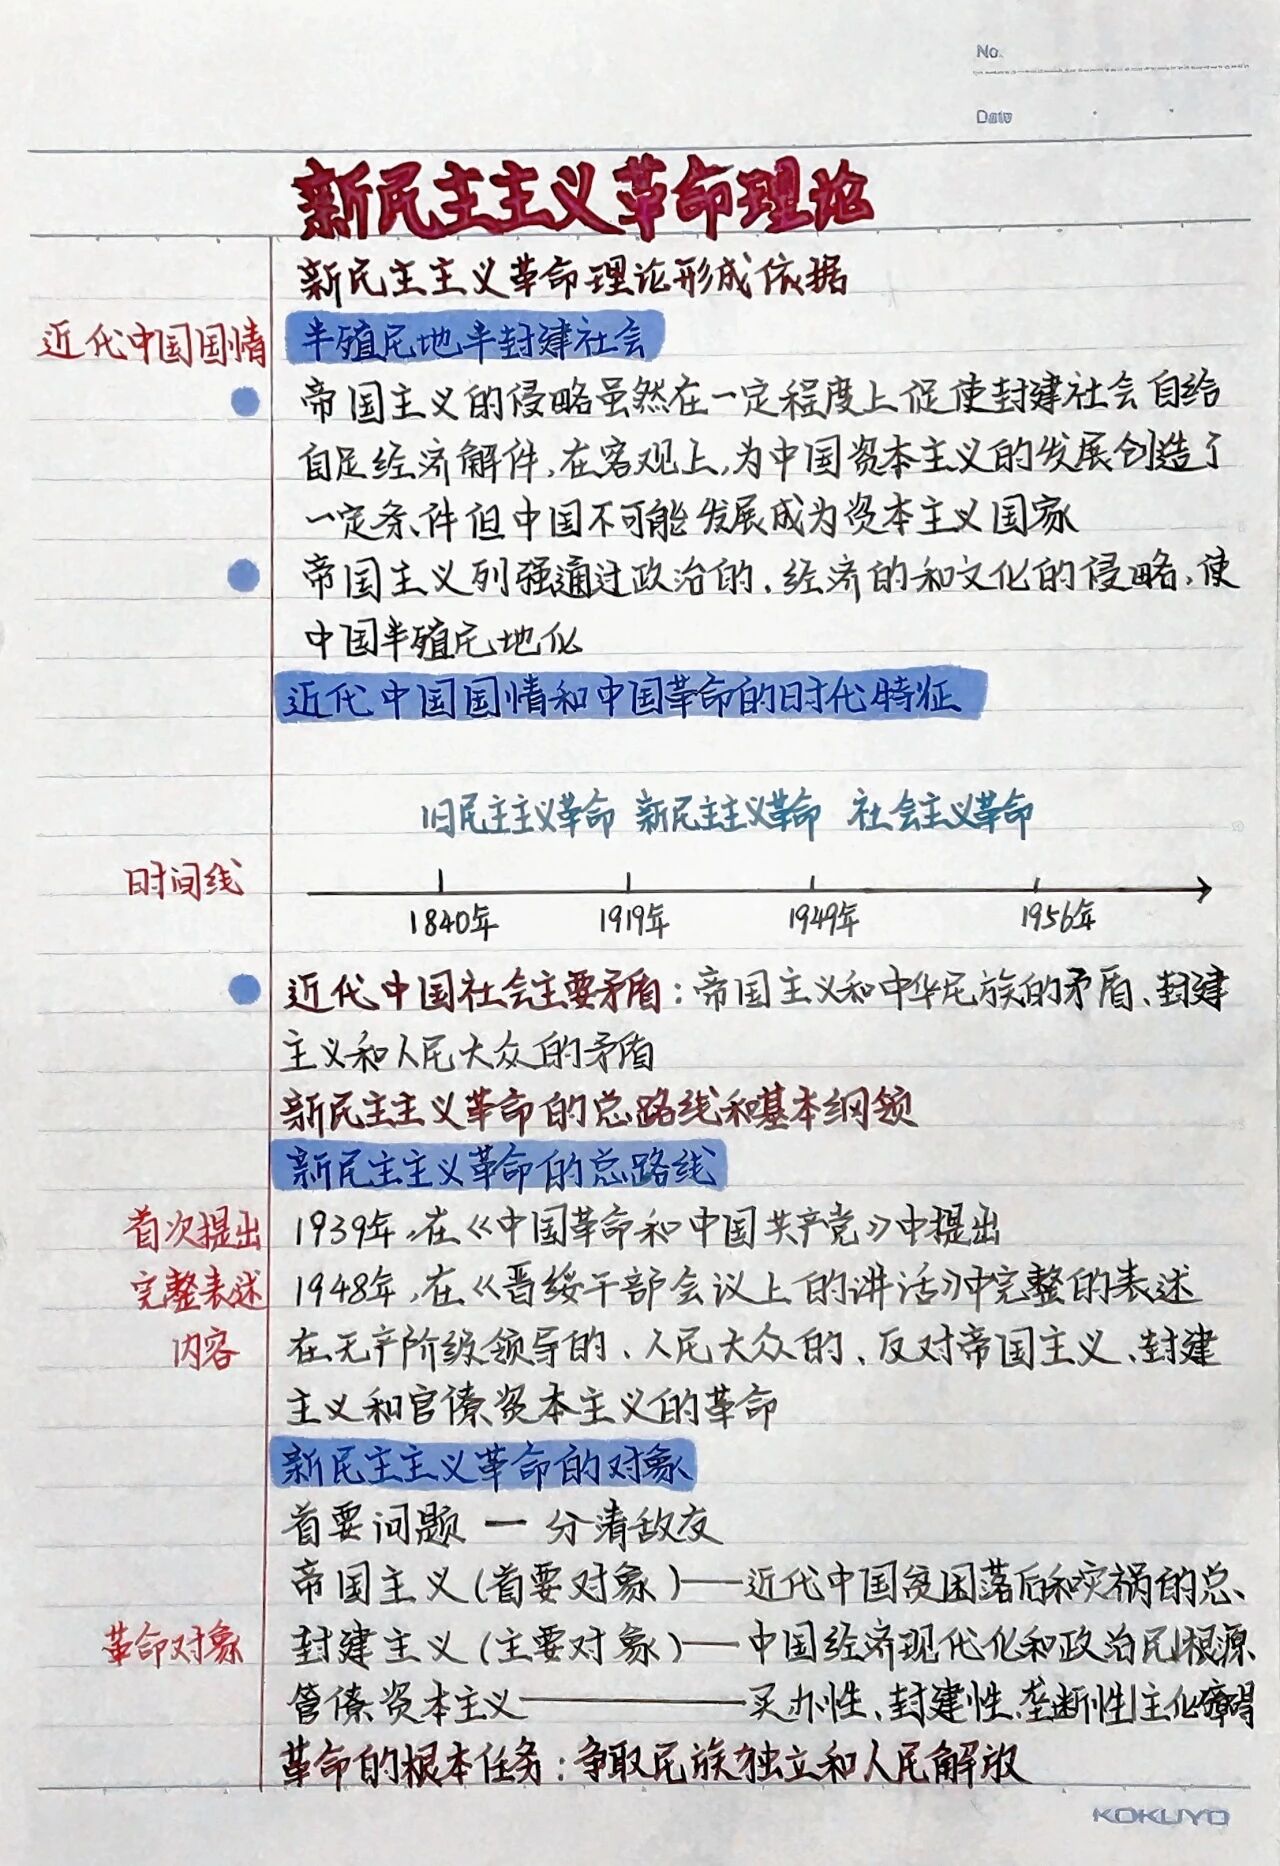 No.
Date
新民主主义革命理论
新民主主义革命理论形成依据
近代中国国情 半殖民地半封建社会
帝国主义的侵略虽然在一定程度上促使封建社会自给
自足经济解件,在客观上,为中国资本主义的发展创造了
一定条件但中国不可能发展成为资本主义国家
帝国主义列强通过政治的、经济的和文化的侵略,使
中国半殖民地化
近代中国国情和中国革命的时代特征
旧民主主义革命 新民主主义革命 社会主义革命
时间线
1840年 1919年 1949年 1956年
近代中国社会主要矛盾:帝国主义和中华民族的矛盾、封建
主义和人民大众的矛盾
新民主主义革命的总路线和基本纲领
新民主主义革命的总路线
首次提出 1939年,在《中国革命和中国共产党》中提出
完整表述 1948年,在《晋绥干部会议上的讲话》中完整的表述
内容 在无产阶级领导的、人民大众的、反对帝国主义、封建
主义和官僚资本主义的革命
新民主主义革命的对象
首要问题 — 分清敌友
帝国主义(首要对象)——近代中国贫困落后和灾祸的总、
革命对象 封建主义(主要对象)——中国经济现代化和政治民 根源
管僚资本主义————买办性、封建性、垄断性 主化障碍
革命的根本任务:争取民族独立和人民解放
KOKUYO